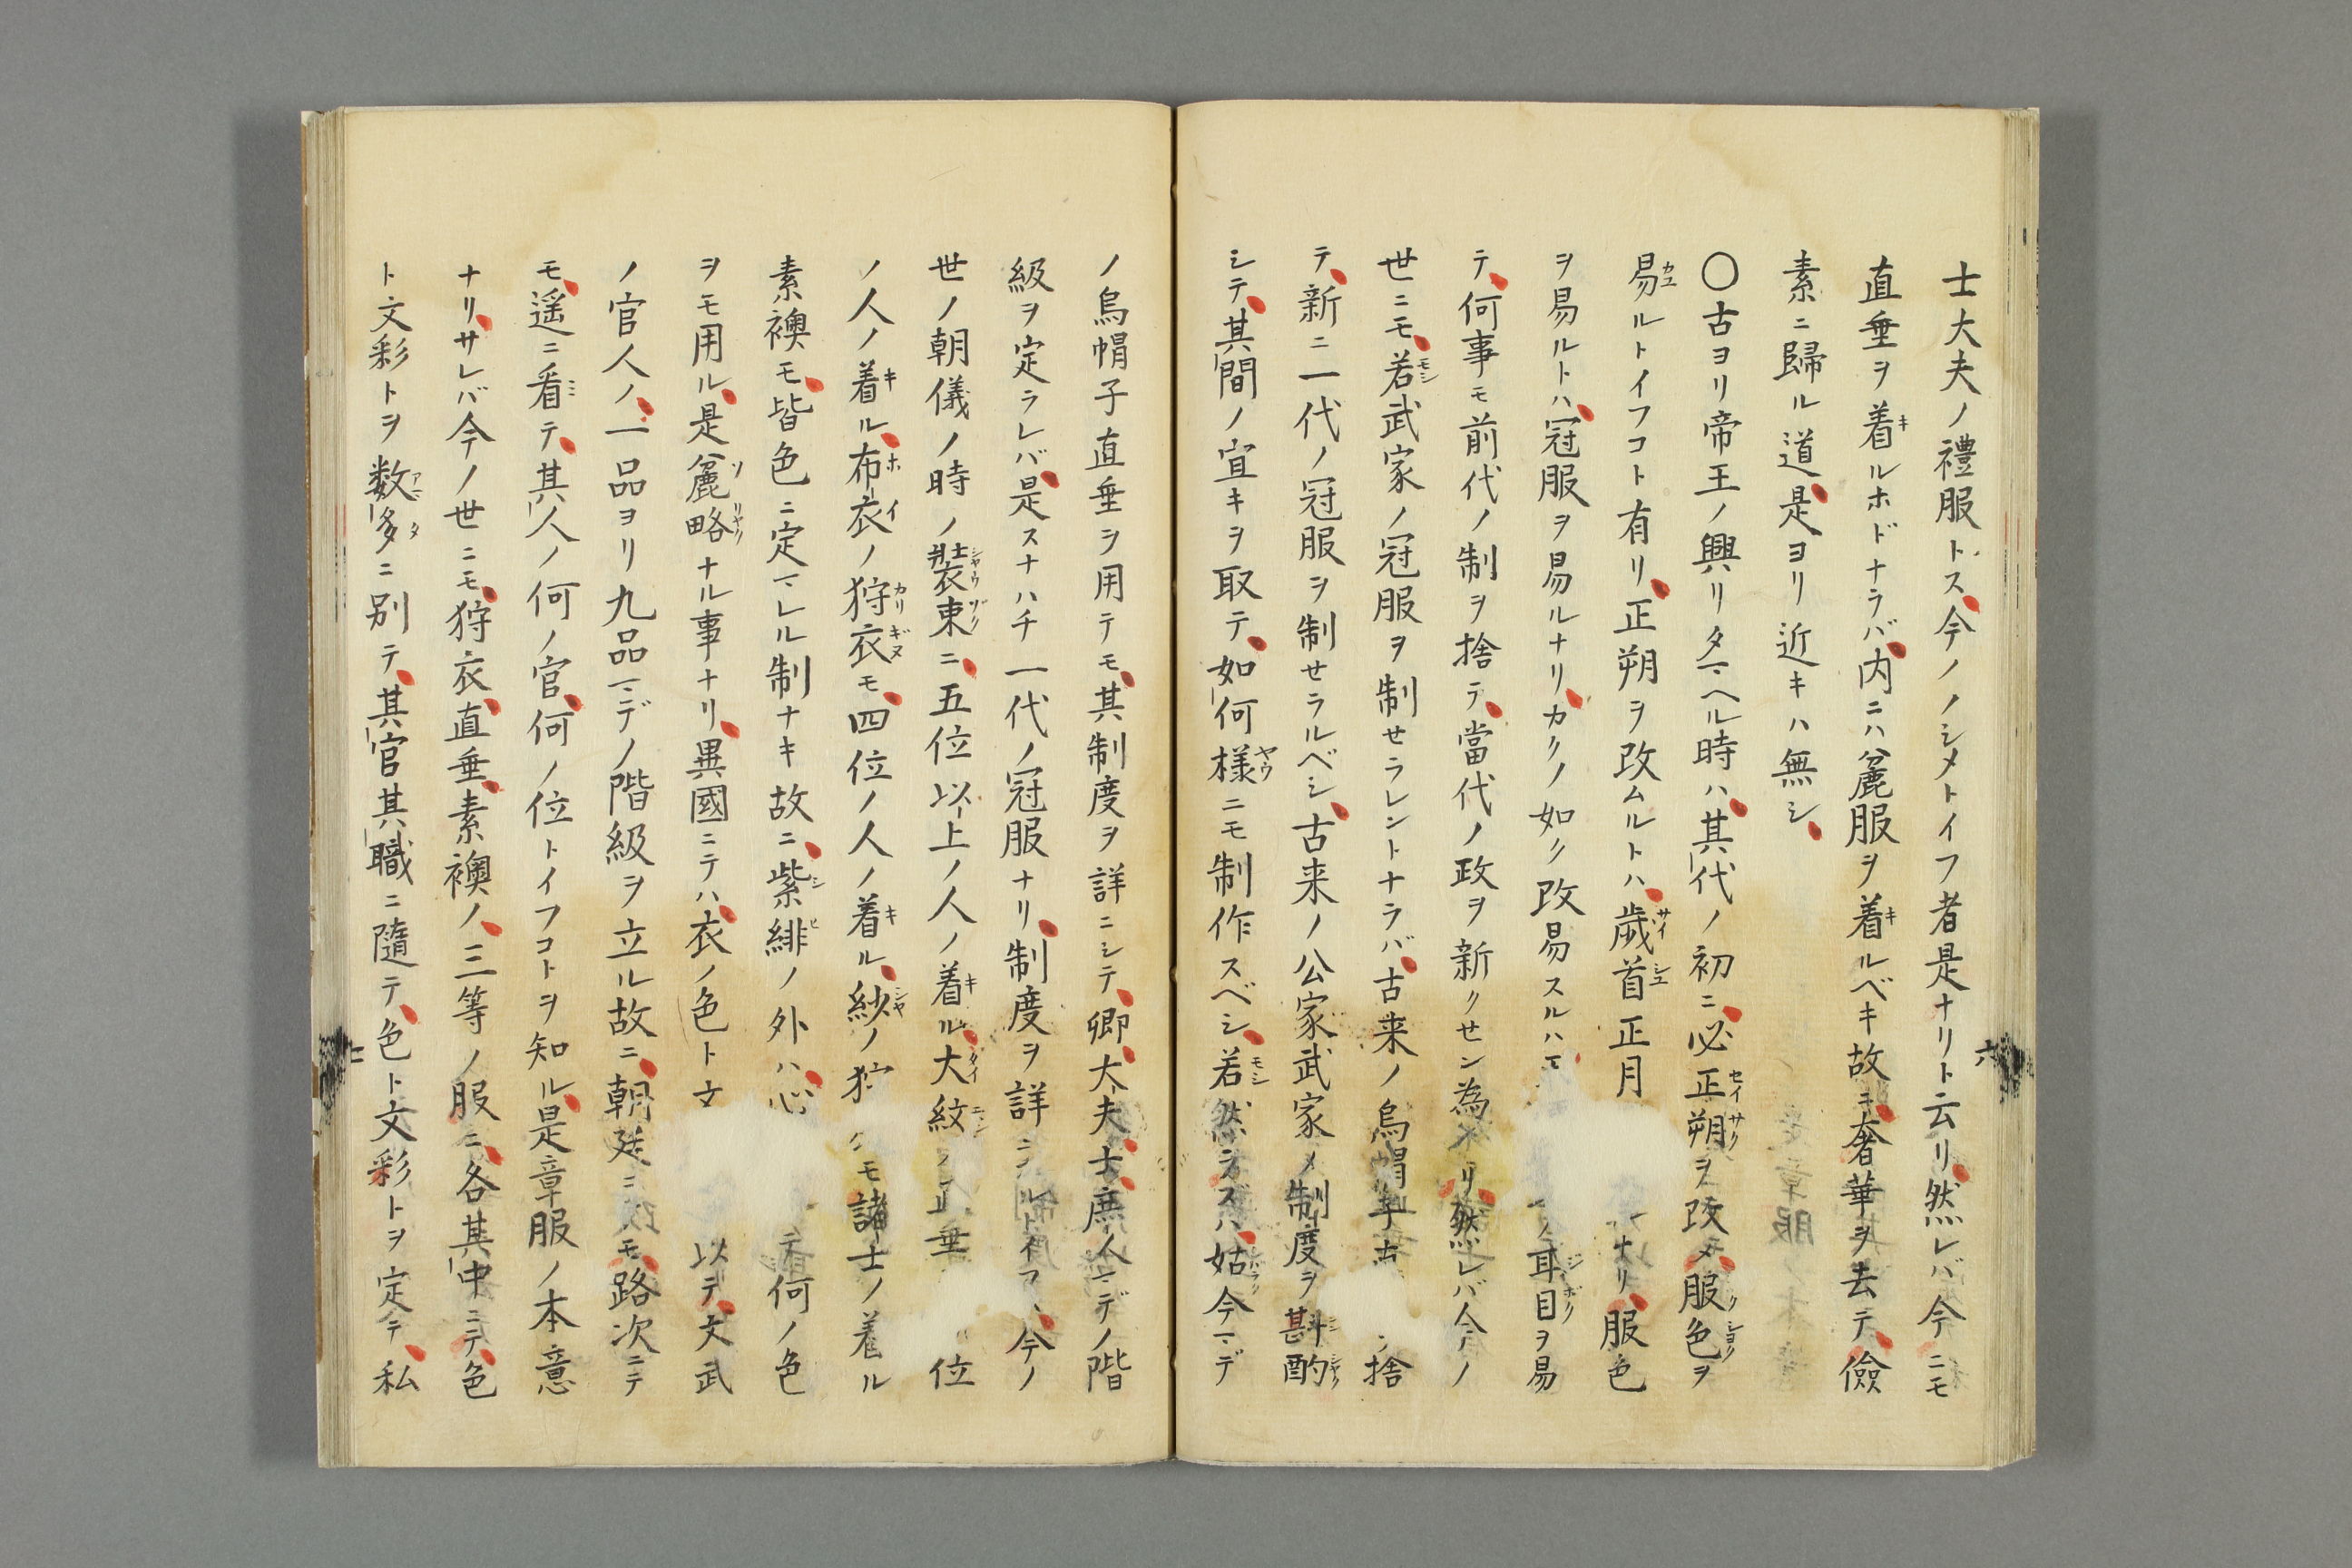 士大夫ノ禮服トス、今ノノシメトイフ者是ナリト云リ、然レバ今ニモ
直垂ヲ着ルホドナラバ、内ニハ麁服ヲ着ルベキ故ニ、奢華ヲ去テ、儉
素ニ歸ル道、是ヨリ近キハ無シ、
〇古ヨリ帝王ノ興リタマヘル時ハ、其代ノ初ニ、必正朔ヲ改メ、服色ヲ
易ルトイフコト有リ、正朔ヲ改ムルトハ、歳首正月 ナリ、服色
ヲ易ルトハ、冠服ヲ易ルナリ、カクノ如ク改易スルハ ノ耳目ヲ易
テ、何事モ前代ノ制ヲ捨テ、當代ノ政ヲ新クセン為 リ、然レバ今ノ
世ニモ、若武家ノ冠服ヲ制セラレントナラバ、古来ノ烏帽子 捨
テ、新ニ一代ノ冠服ヲ制セラルベシ、古来ノ公家武家ノ制度ヲ斟酌
シテ、其間ノ宜キヲ取テ、如何様ニモ制作スベシ、若然ラズハ、姑今マデ
六
ノ烏帽子直垂ヲ用テモ、其制度ヲ詳ニシテ、卿大夫、士、庶人マデノ階
級ヲ定ラレバ、是スナハチ一代ノ冠服ナリ、制度ヲ詳ニ ルトイフハ、今ノ
世ノ朝儀ノ時ノ装束ニ、五位以上ノ人ノ着ル、大紋ノ直垂 位
ノ人ノ着ル、布衣ノ狩衣モ、四位ノ人ノ着ル、紗ノ狩 モ諸士ノ着ル
素襖モ、皆色ニ定マレル制ナキ故ニ、紫緋ノ外ハ、心 何ノ色
ヲモ用ル、是麁略ナル事ナリ、異國ニテハ、衣ノ色ト文 以テ、文武
ノ官人ノ、一品ヨリ九品マデノ階級ヲ立ル故ニ、朝廷ニ モ、路次ニテ
モ、遥ニ看テ、其人ノ何ノ官、何ノ位トイフコトヲ知ル、是章服ノ本意
ナリ、サレバ今ノ世ニモ、狩衣、直垂、素襖ノ、三等ノ服ニ、各其中ニテ、色
ト文彩トヲ数多ニ別テ、其官其職ニ隨テ、色ト文彩トヲ定テ、私